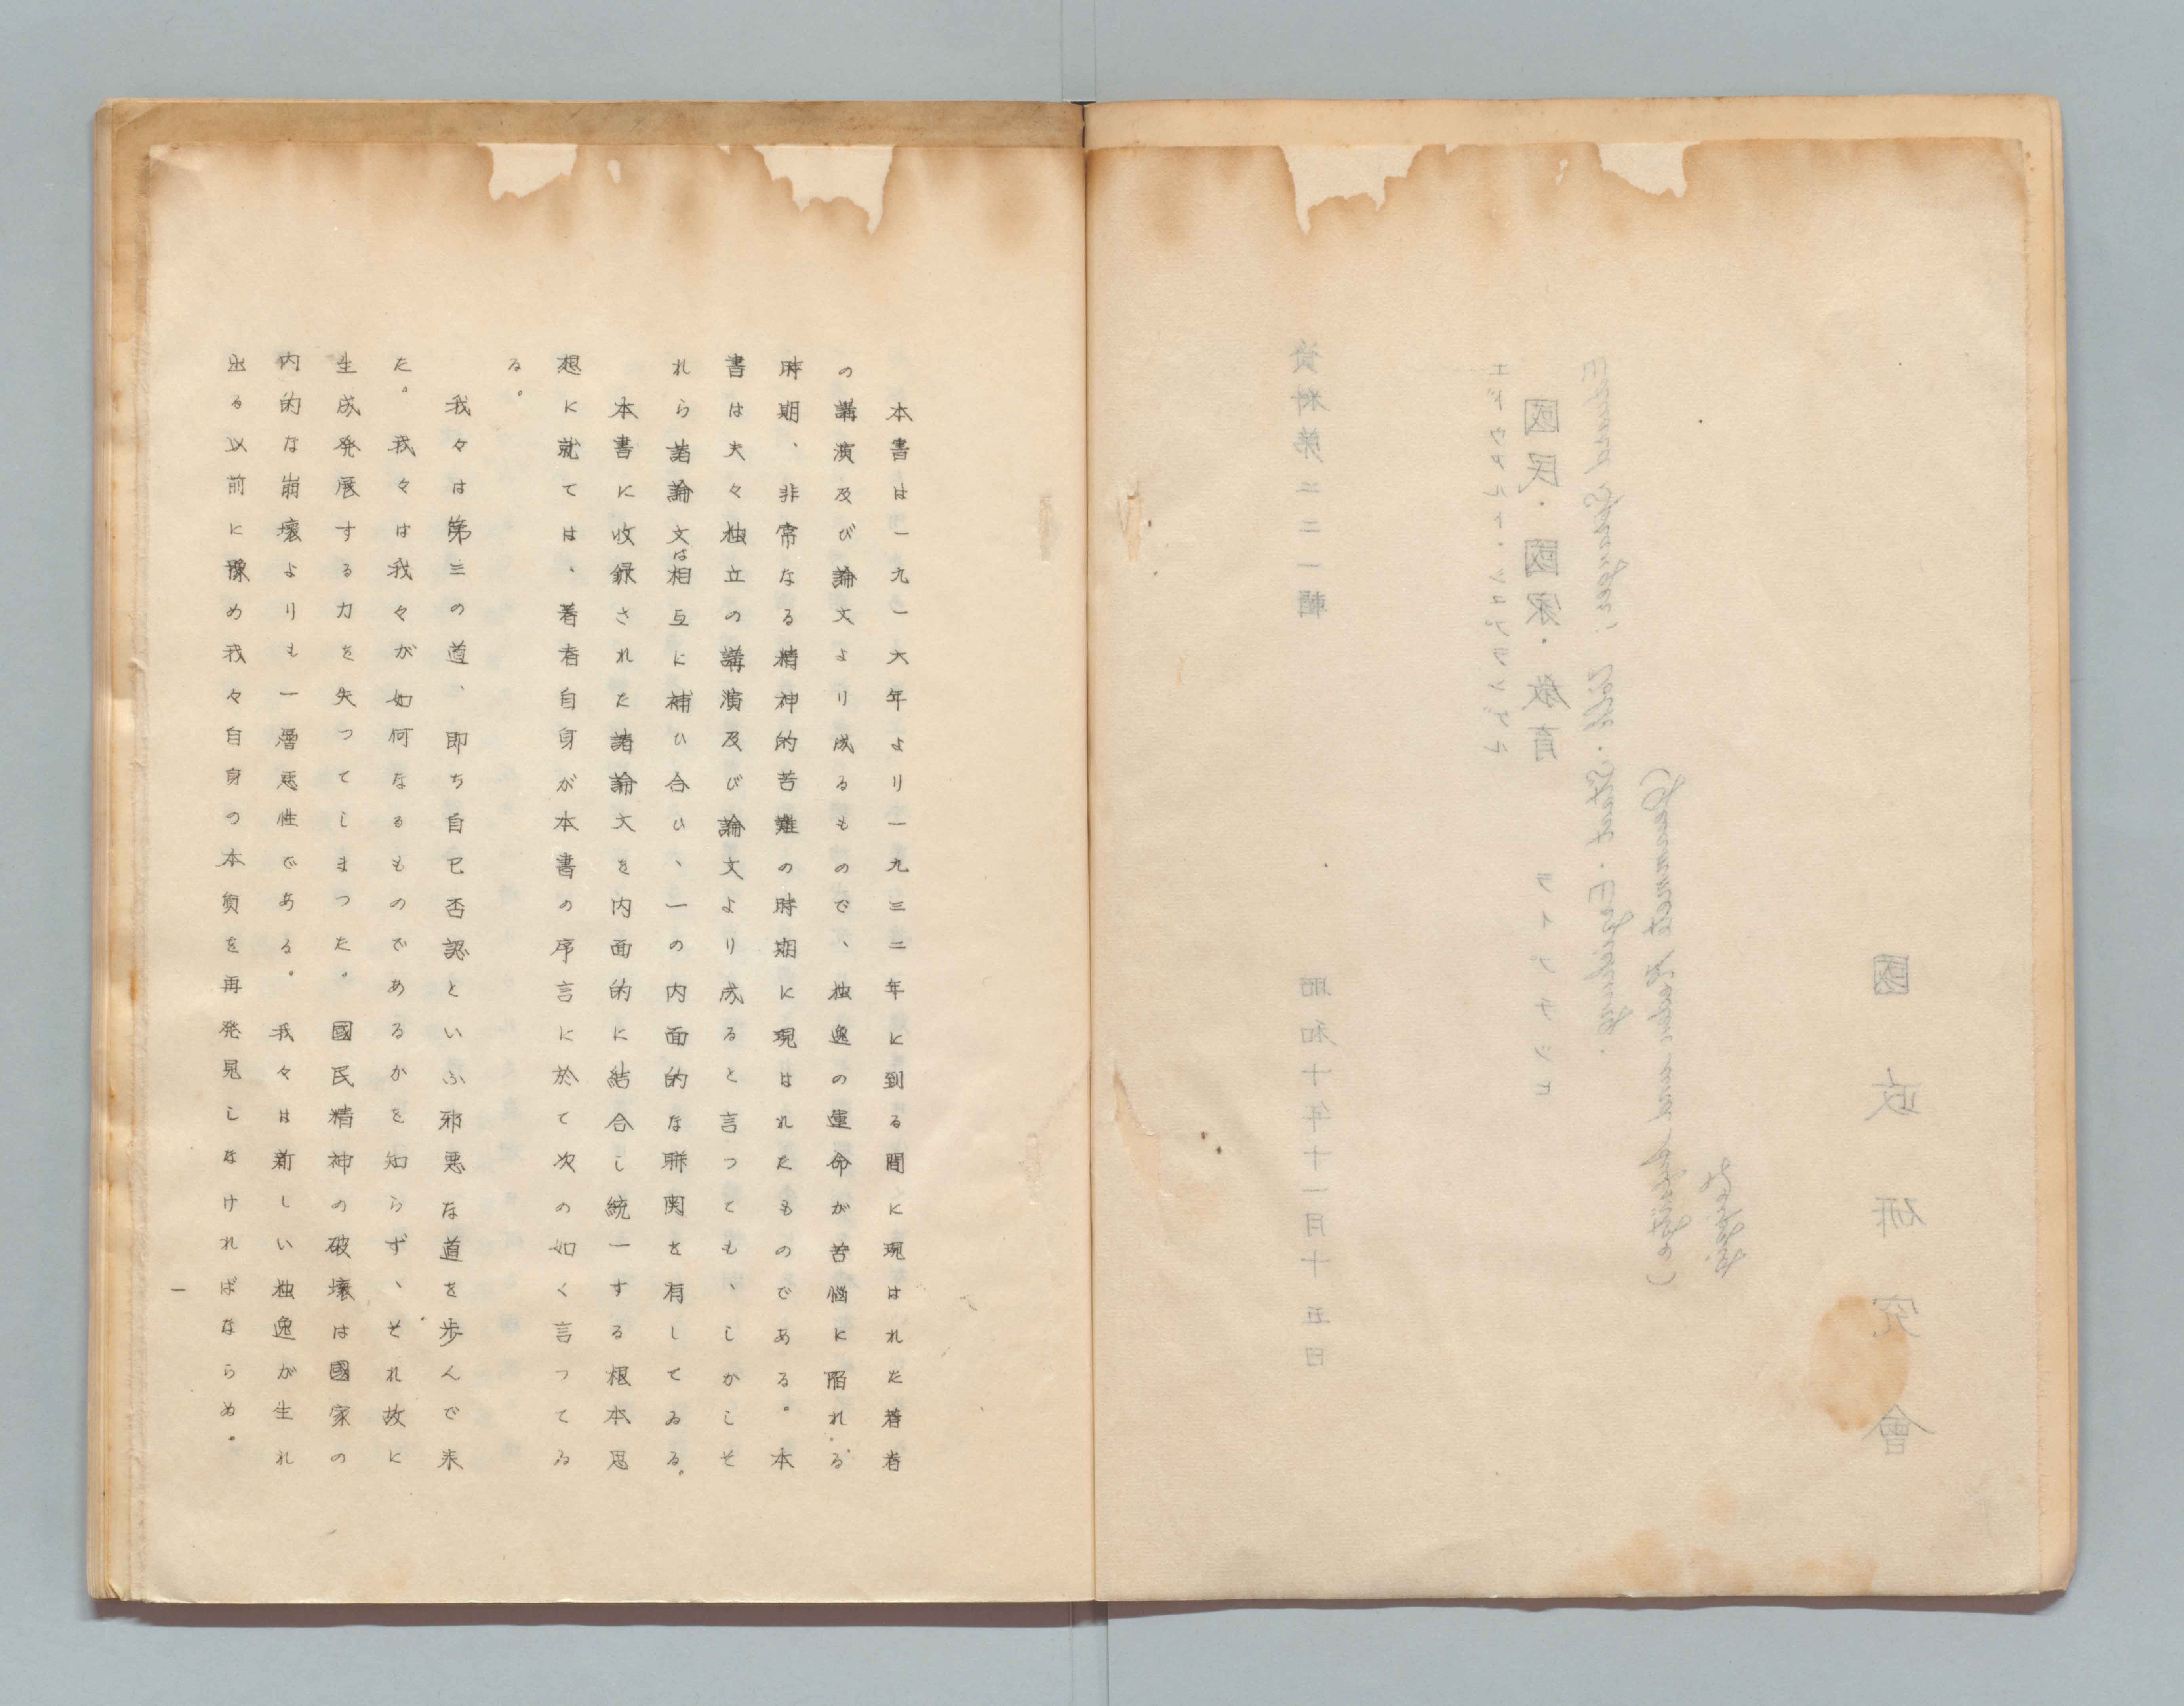 國政研究會
(Gesammelte Reden und Aufsätze)
Eduard Spranger, Volk. Staat. Erziehung.
國民・國家・教育
ライプチツヒ
エドウアルト・シユプランゲル
資料第二二一輯
昭和十年十一月十五日
本書は一九一六年より一九三二年に到る間に現はれた著者
の講演及び論文より成るもので、独逸の運命が苦悩に陥れる
時期、非常なる精神的苦難の時期に現はれたものである。本
書は夫々独立の講演及び論文より成ると言つても、しかしそ
れら諸論文は相互に補ひ合ひ、一の内面的な聯関を有してゐる。
本書に收録された諸論文を内面的に結合し統一する根本思
想に就ては、著者自身が本書の序言に於て次の如く言つてゐ
る。
我々は第三の道、即ち自己否認といふ邪悪な道を歩んで来
た。我々は我々が如何なるものであるかを知らず、それ故に
生成発展する力を失つてしまつた。國民精神の破壊は國家の
内的な崩壊よりも一層悪性である。我々は新しい独逸が生れ
出る以前に豫め我々自身の本質を再発見しなければならぬ。
一